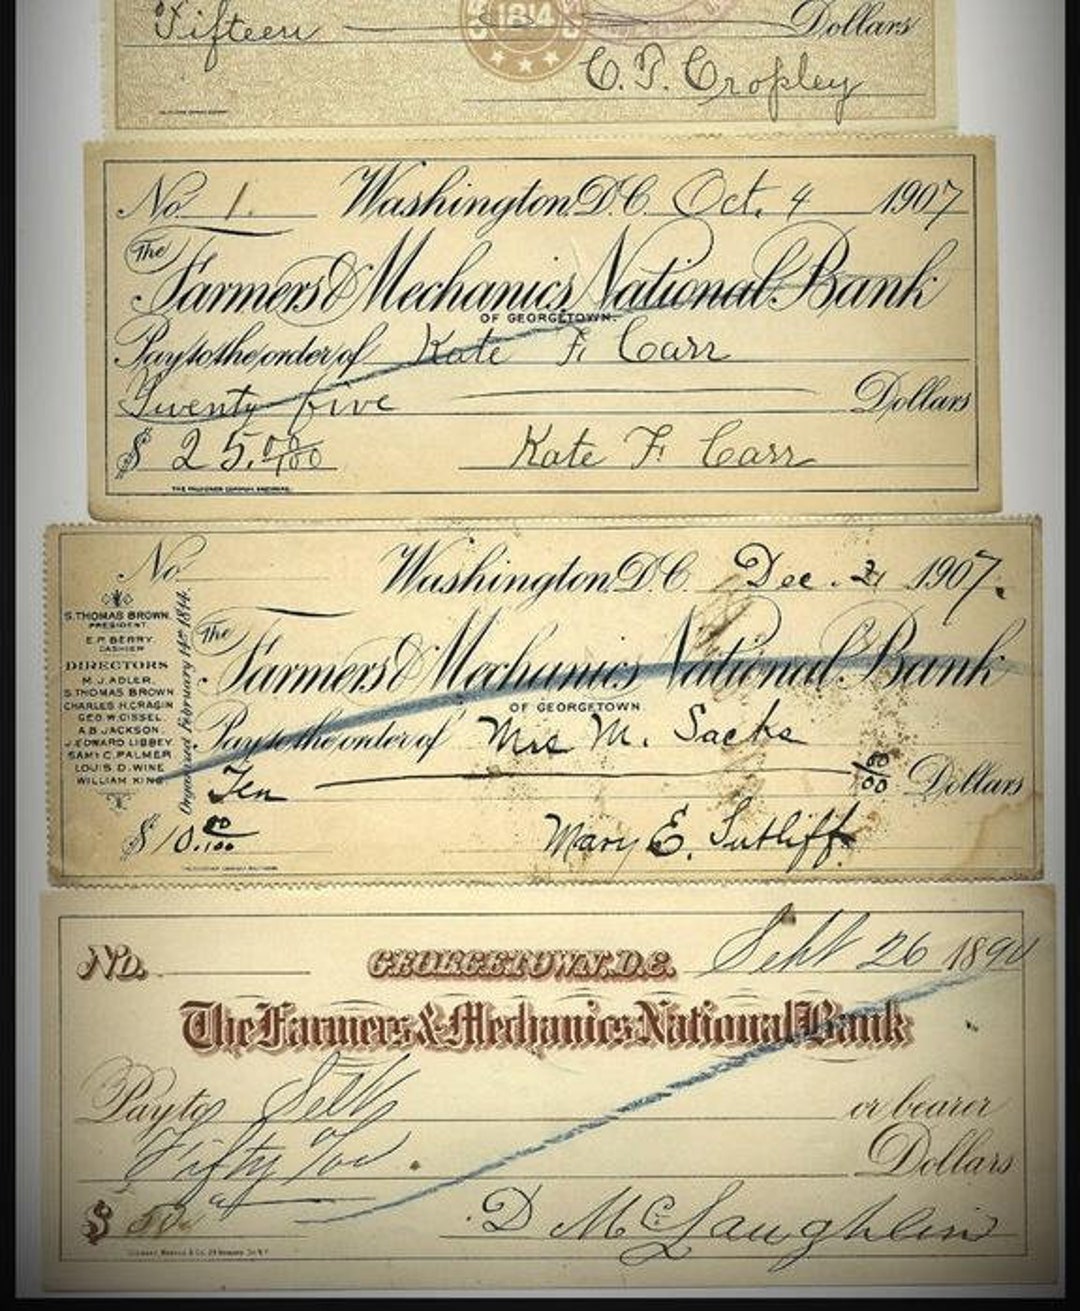 Fifteen Dollars
1814
C. T. Cropley
No. 1. Washington, D.C. Oct. 4 1907
The
Farmers & Mechanics National Bank
OF GEORGETOWN.
Pay to the order of Kate F. Carr
Twenty-five Dollars
$ 25.00/100 Kate F. Carr
No. Washington, D.C. Dec. 1907.
S. THOMAS BROWN.
PRESIDENT.
E. P. BERRY.
CASHIER
DIRECTORS
M. J. ADLER.
S. THOMAS BROWN
CHARLES H. CRAGIN
GEO. W. CISSEL.
A. B. JACKSON.
J. EDWARD LIBBEY
SAML C. PALMER
LOUIS D. WINE
WILLIAM KING
Organized February 14th 1814.
The
Farmers & Mechanics National Bank
OF GEORGETOWN.
Pay to the order of M. Sacks
Ten 00/00 Dollars
$ 10.00/100 Mary E. Sutliff
No. GEORGETOWN, D.C. Sept 26 1890
The Farmers & Mechanics National Bank
Pay to Self or bearer
Fifty Dollars
$ D McLaughlin